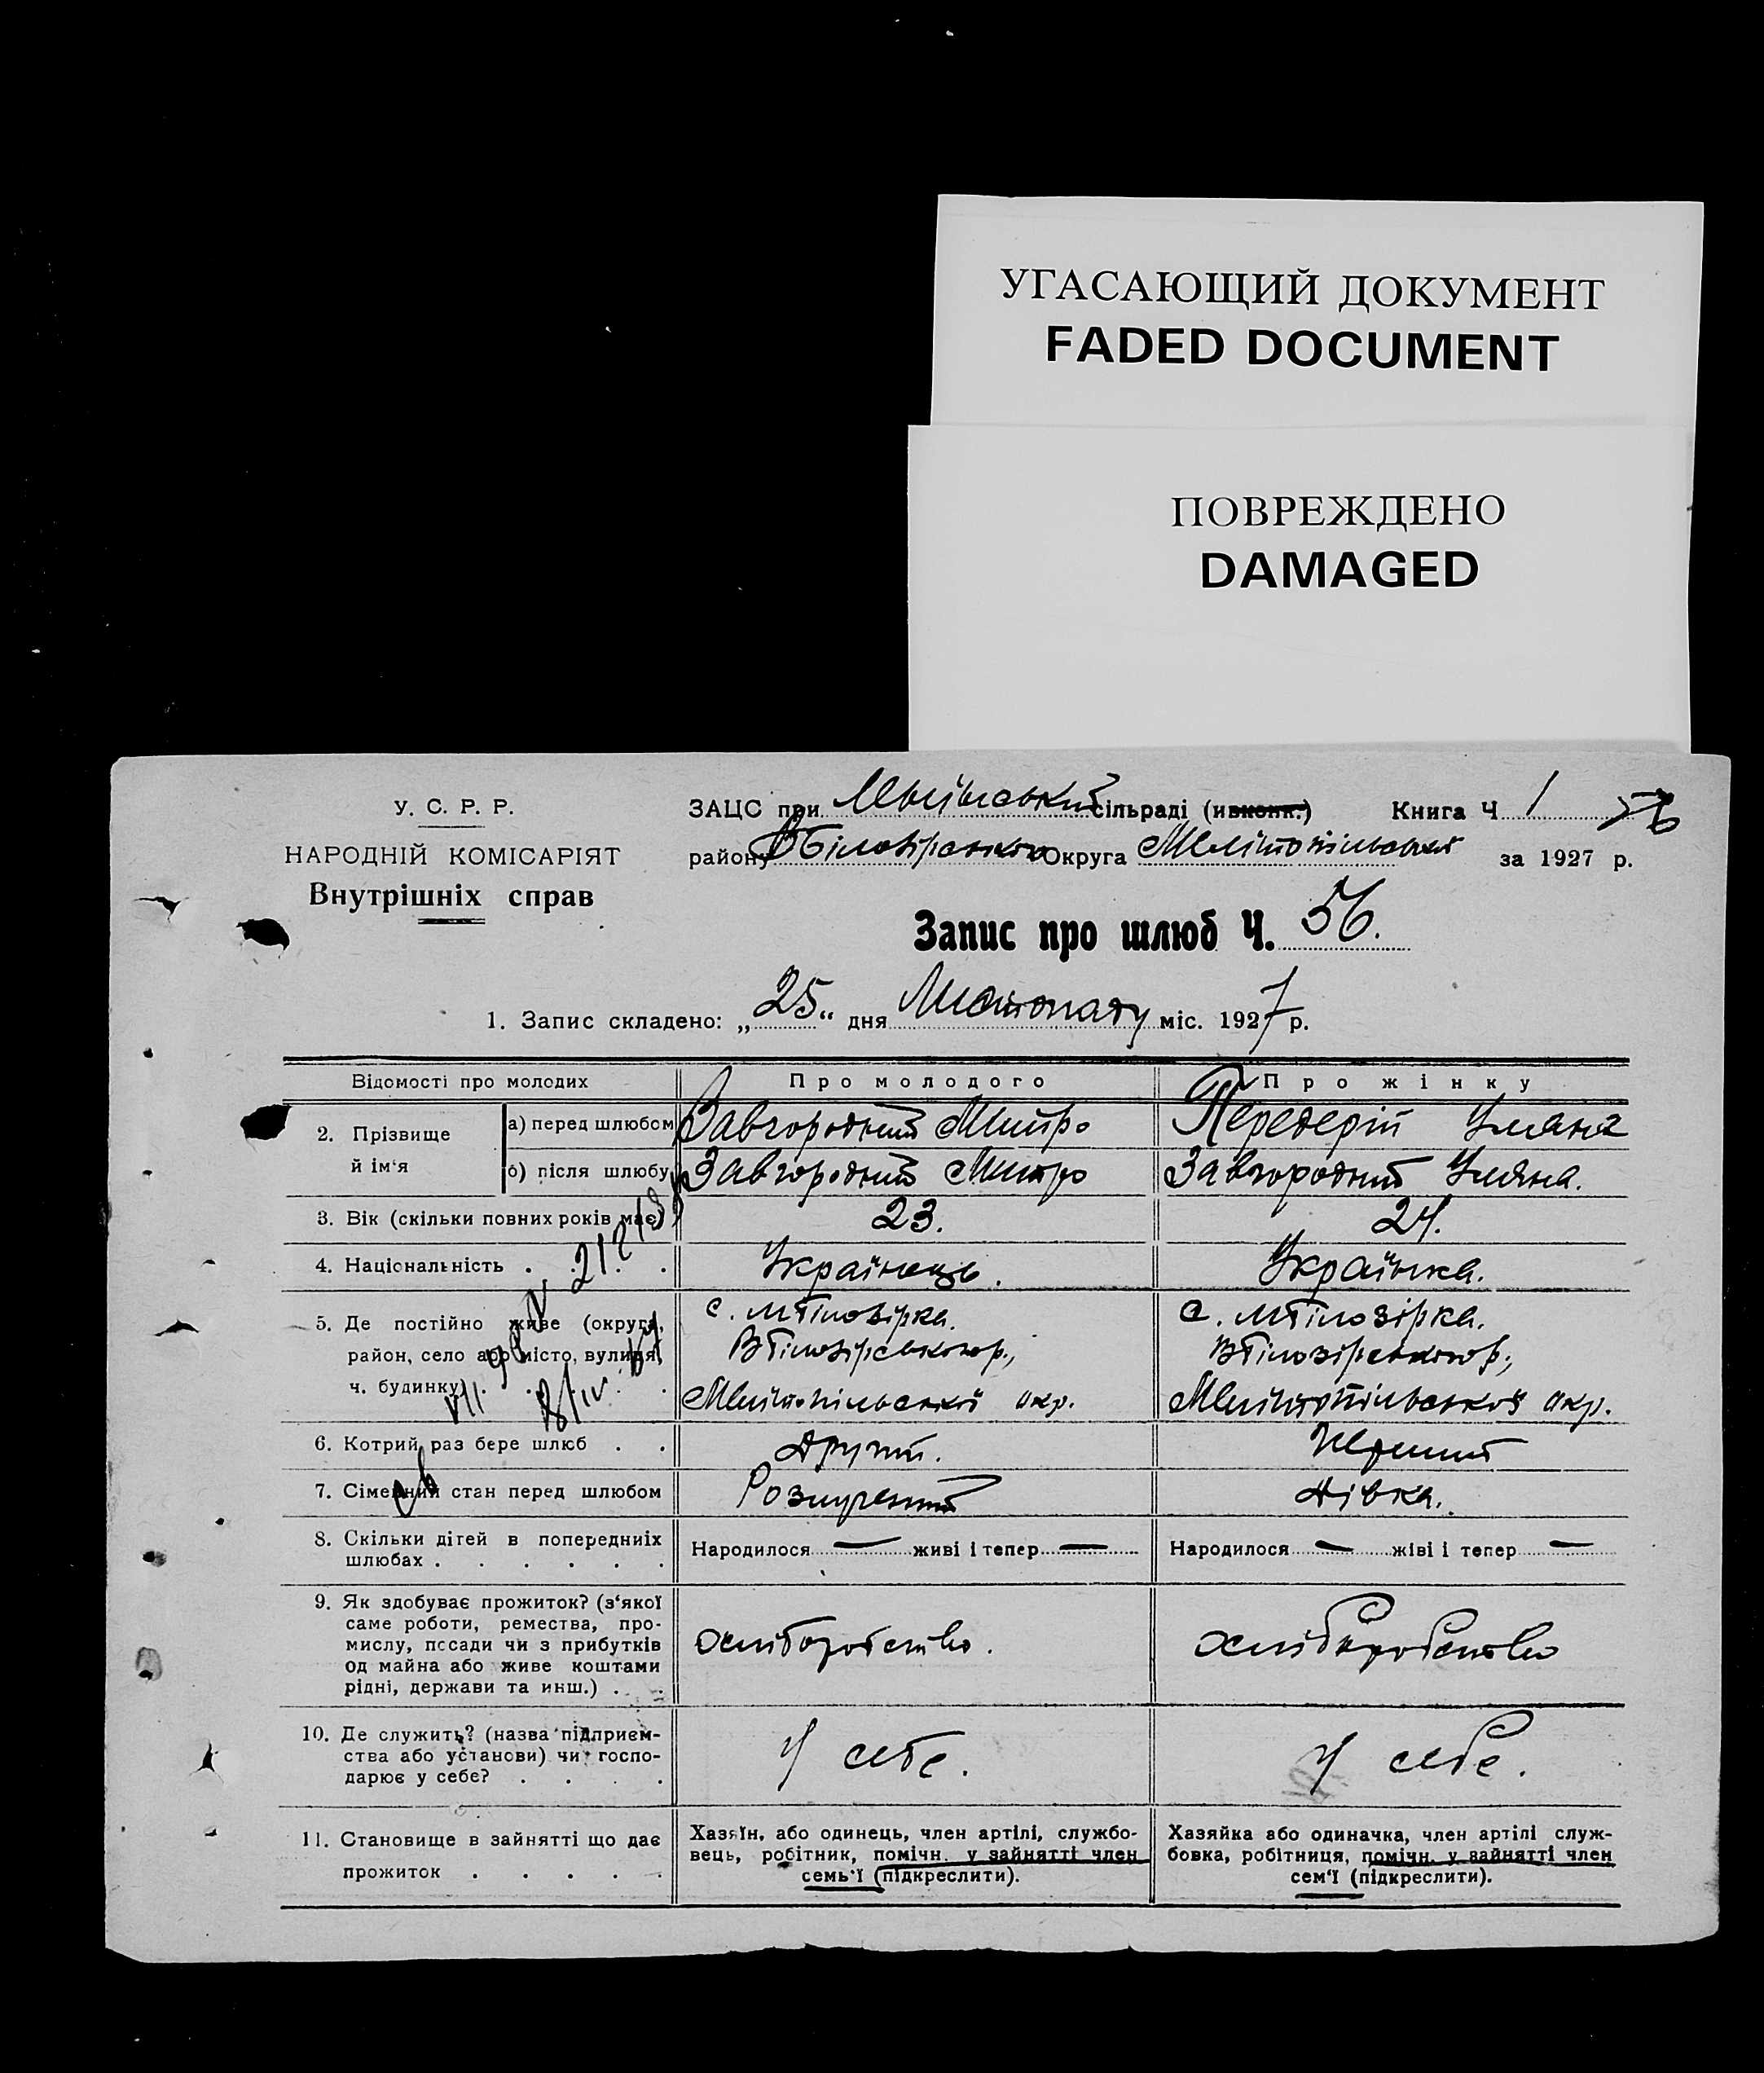 УГАСАЮЩИЙ ДОКУМЕНТ
FADED DOCUMENT
ПОВРЕЖДЕНО
DAMAGED
У. С. Р. Р.
НАРОДНІЙ КОМІСАРІЯТ
Внутрішніх справ
ЗАЦС при сільраді (ивконк.) Книга Ч 1 56
району ВБілозірського Округа Мелітопільська за 1927 р.
Запис про шлюб Ч. 56.
1. Запис складено: „25“ дня Листопаду міс. 1927 р.
Відомості про молодих
Про молодого
Про жінку
2. Прізвище й ім‘я
а) перед шлюбом Завгородний Митро Передерій Уляна
б) після шлюбу Завгородний Митро Завгородний Уляна.
3. Вік (скільки повних років має) 23. 24.
4. Національність . . . . Українець. Українка.
5. Де постійно живе (округа, с. МБілозірка. с. МБілозірка.
район, село або місто, вулиця, ВБілозірського р., ВБілозірського р.,
ч. будинку) . . . . Мелітопільської окр. Мелітопільської окр.
6. Котрий раз бере шлюб . . Другий. Перший
7. Сімейний стан перед шлюбом Розлучений Дівка.
8. Скільки дітей в попередниіх
шлюбах . . . . . .
Народилося — живі і тепер —
Народилося — жіві і тепер —
9. Як здобуває прожиток? (з‘якої
саме роботи, ремества, про-
мислу, посади чи з прибутків
од майна або живе коштами
рідні, держави та инш.) . .
хліборобство.
хліборобство
10. Де служить? (назва підприєм-
ства або установи) чи госпо-
дарює у себе? . . . .
У себе.
У себе.
11. Становище в зайнятті що дає
прожиток . . . . .
Хазяїн, або одинець, член артілі, службо-
вець, робітник, помічн. у зайнятті член
семь‘ї (підкреслити).
Хазяйка або одиначка, член артілі служ-
бовка, робітниця, помічн. у зайнятті член
сем‘ї (підкреслити).